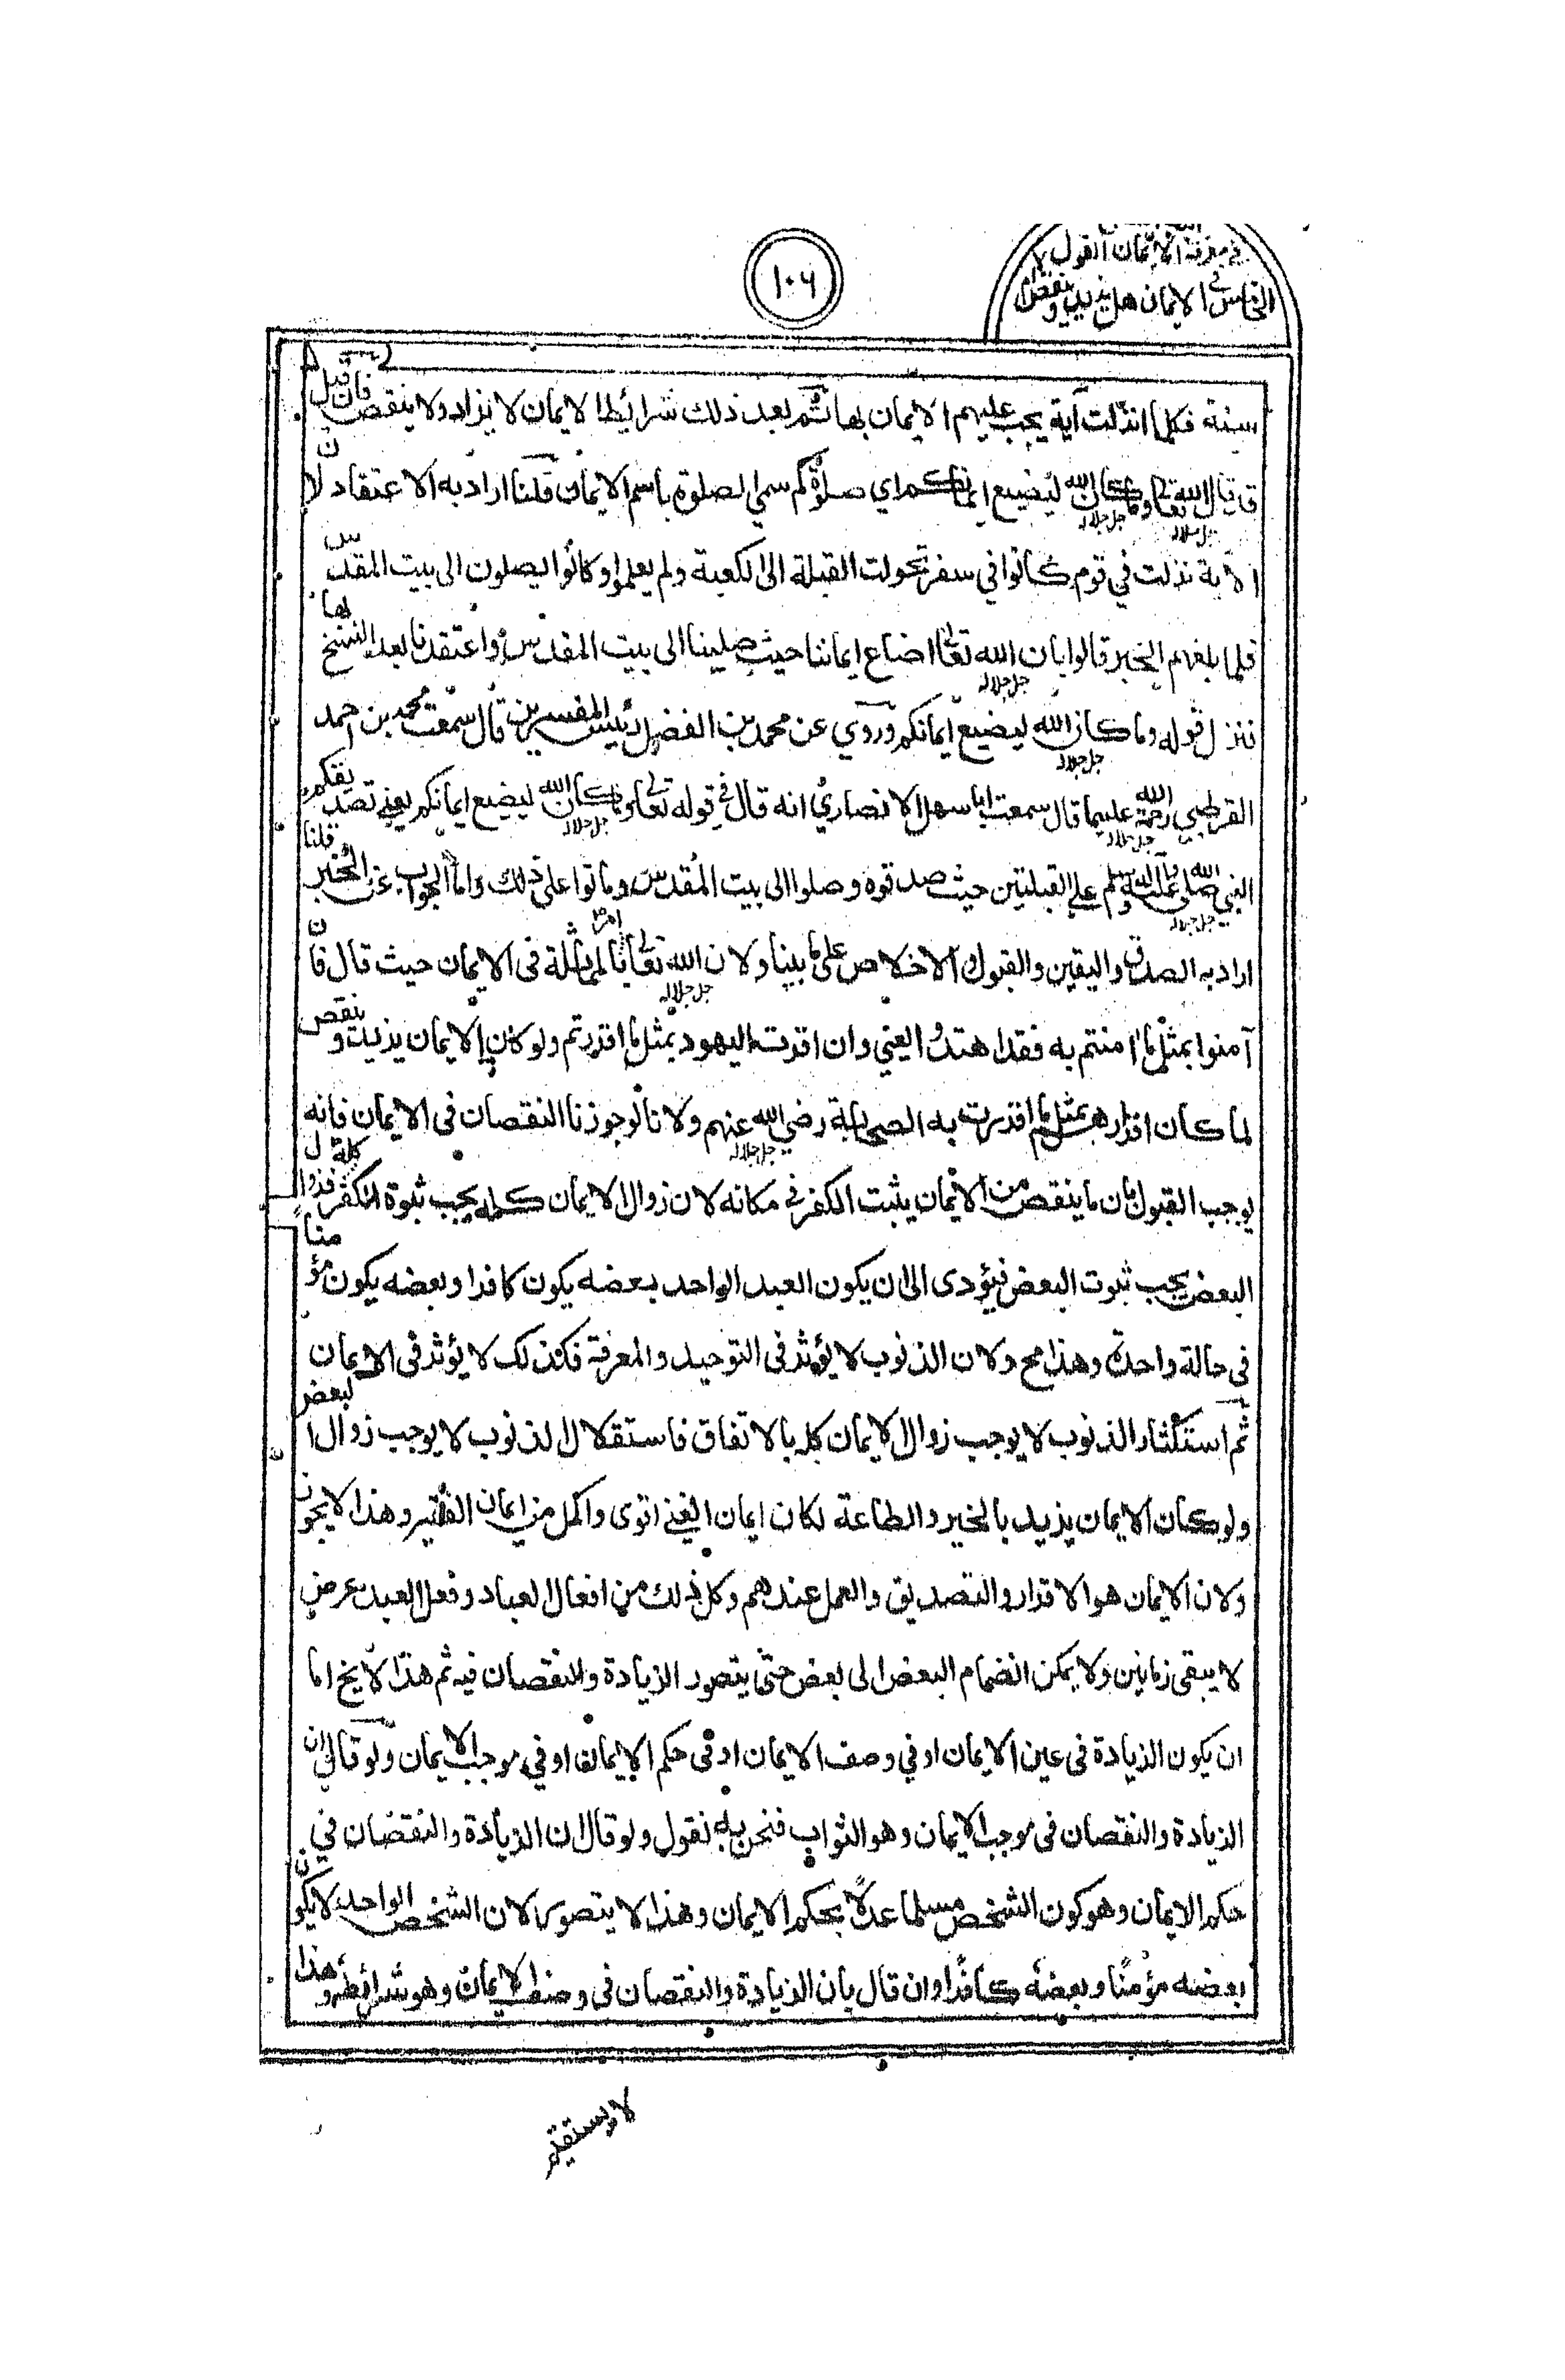 في معرفة الايمان القول
الخامس في الايمان هل يزيد وينقص ام لا
١٠٦
سنة فكلما انزلت آية يجب عليهم الايمان بها ثم بعد ذلك شرائيط الايمان لا يزاد ولا ينقص فان قيل
قال الله تعالى وما كان الله ليضيع ايمانكم اي صلوتكم سمى الصلوة باسم الايمان قلنا اراد به الاعتقاد لان
الاية نزلت في قوم كانوا في سفر تحولت القبلة الى الكعبة ولم يعلموا وكانوا يصلون الى بيت المقدس
فلما بلغهم الخبر قالوا بان الله تعالى اضاع ايماننا حيث صلينا الى بيت المقدس واعتقدنا بعد النسخ بها
فنزل قوله وما كان الله ليضيع ايمانكم وروي عن محمد بن الفضل رئيس المفسرين قال سمعت محمد بن احمد
القرطبي رحمة الله عليهما قال سمعت ابا سهل الانصاري انه قال في قوله تعالى وما كان الله ليضيع ايمانكم يعني تصديقكم
النبي صلى الله عليه وآله وسلم على القبلتين حيث صدقوه وصلوا الى بيت المقدس وماتوا على ذلك واما الجواب عن الخبر قلنا
اراد به الصدق واليقين والقبول والاخلاص على ما بينا ولان الله تعالى امرنا بالمماثلة في الايمان حيث قال فان
آمنوا بمثل ما امنتم به فقد اهتدوا يعني وان اقرت اليهود بمثل ما اقررتم ولو كان الايمان يزيد وينقص
لما كان اقرارهم بمثل ما اقررت به الصحابة رضي الله عنهم ولانا لو جوزنا النقصان في الايمان فانه
يوجب القبول بان ما ينقص من الايمان يثبت الكفر في مكانه لان زوال الايمان كله يجب ثبوة الكفر كله فزوال
البعض يجب ثبوت البعض فيؤدى الى ان يكون العبد الواحد بعضه يكون كافرا وبعضه يكون مؤمنا
في حالة واحدة وهذا مح ولان الذنوب لا يؤثر في التوحيد والمعرفة فكذلك لا يؤثر في الايمان
ثم استكثار الذنوب لا يوجب زوال الايمان كله بالاتفاق فاستقلال الذنوب لا يوجب زوال البعض
ولو كان الايمان يزيد بالخير والطاعة لكان ايمان الغني اقوى واكمل من ايمان الفقير وهذا لا يجوز
ولان الايمان هو الاقرار والتصديق والعمل عندهم وكل ذلك من افعال العباد وفعل العبد عرض
لا يبقى زمانين ولا يمكن انضمام البعض الى بعض حتى يتصور الزيادة والنقصان فيه ثم هذا لا يخ اما
ان يكون الزيادة في عين الايمان او في وصف الايمان او في حكم الايمان او في موجب الايمان ولو قال ان
الزيادة والنقصان في موجب الايمان وهو الثواب فنحن به نقول ولو قال ان الزيادة والنقصان في
حكم الايمان وهو كون الشخص مسلما عدلا بحكم الايمان وهذا لا يتصور لان الشخص الواحد لا يكون
بعضه مؤمنا وبعضه كافرا وان قال بان الزيادة والنقصان في وصف الايمان وهو شرائطه وهذا
لا يستقيم